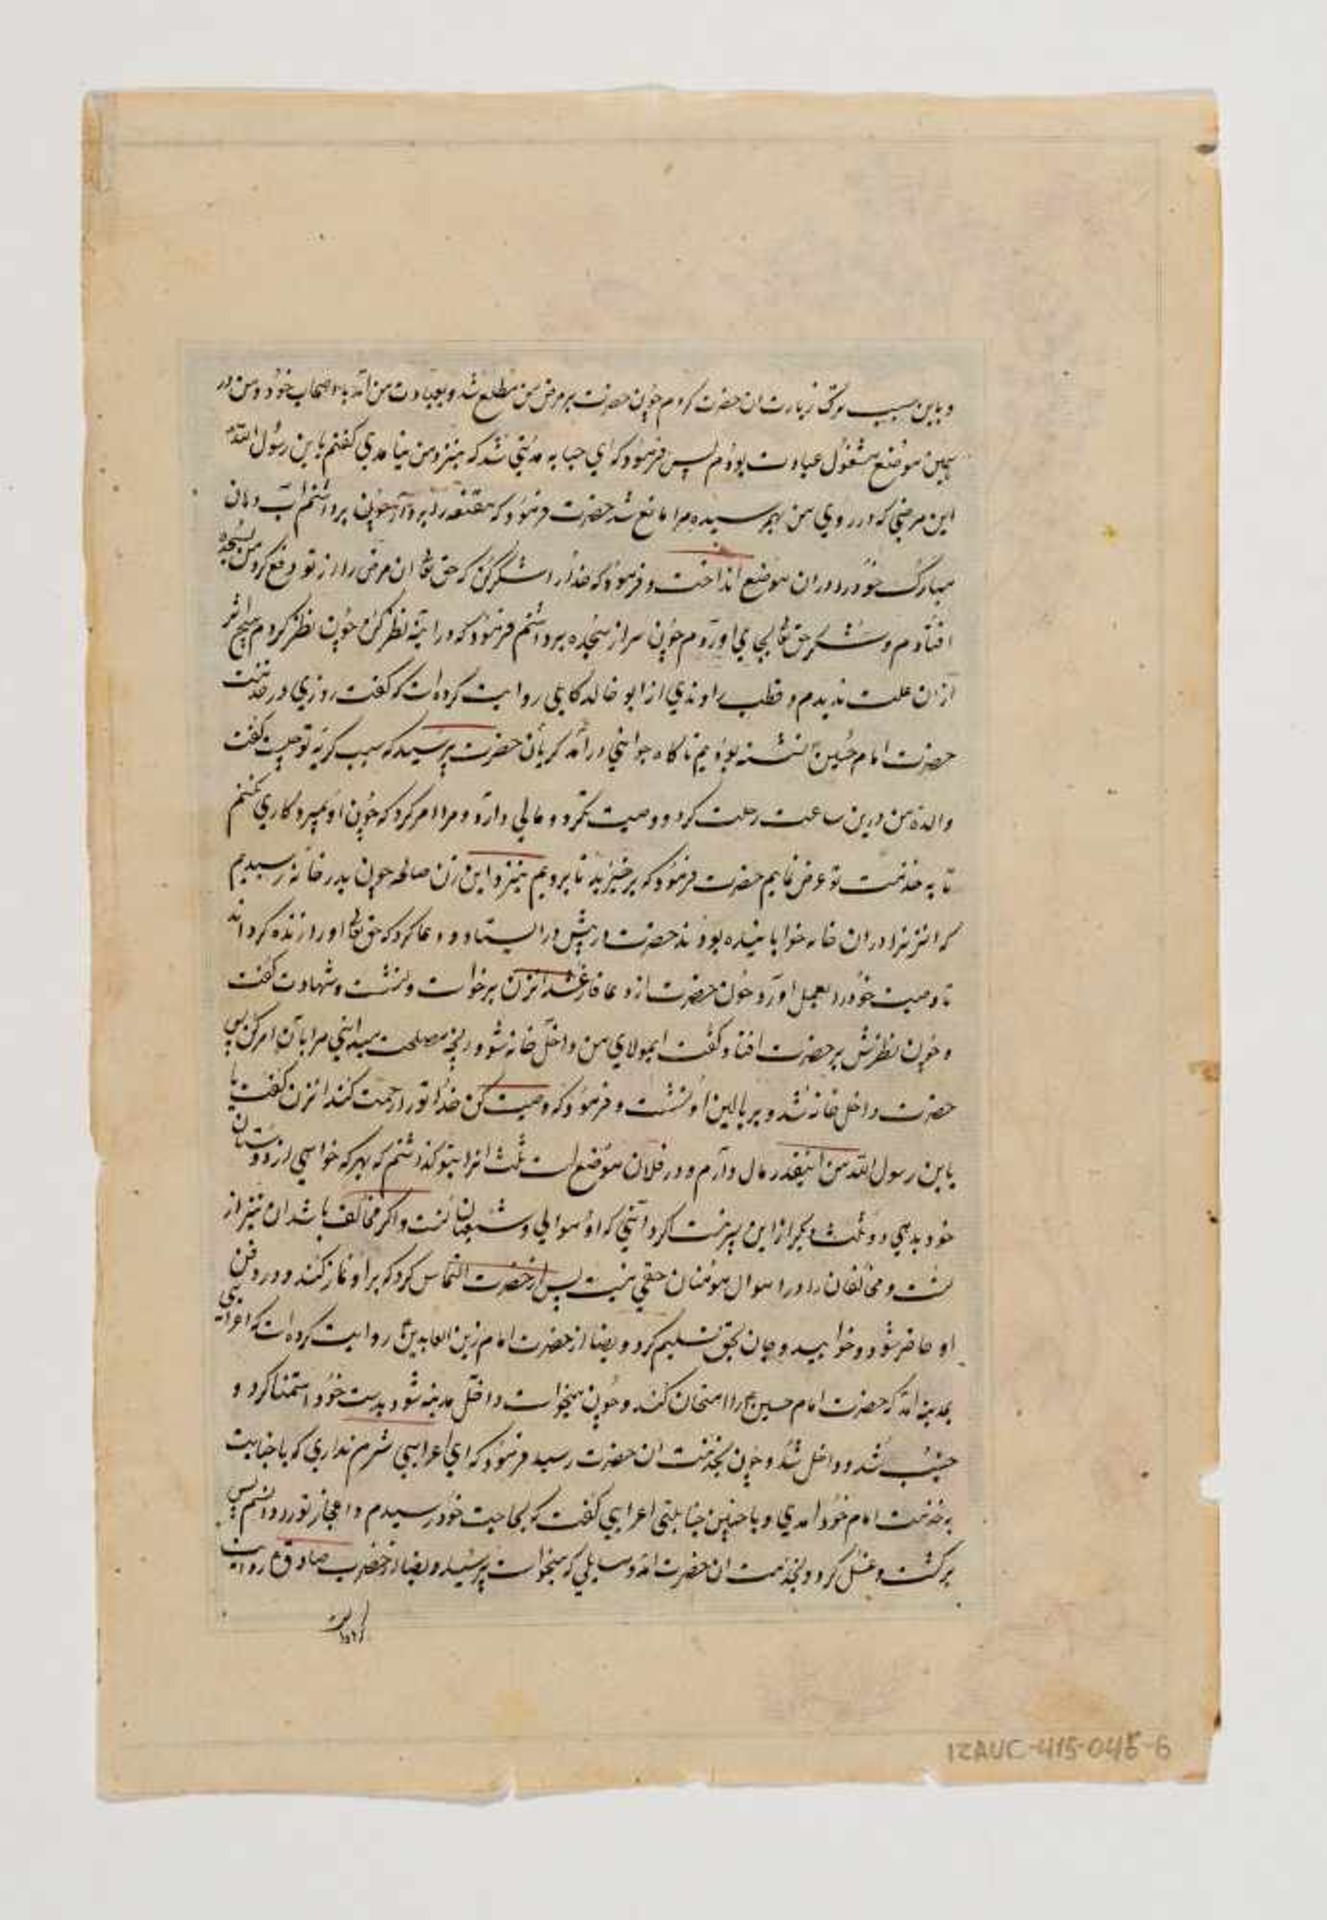 و باین سبب ترک زیارت ان حضرت کردم چون حضرت بر مرض من مطلع شد و بعیادت من آمد با اصحاب خود و من در
همین موضع مشغول عبادت بودم پس فرمود که ای حبابه مدتی شد که بنزد من نیامدی گفتم یا بن رسول الله
این مرضی که در روی من بهم رسیده مرا مانع شد حضرت فرمود که مقنعه را بردار چون برداشتم آب دهان
مبارک خود را در ان موضع انداخت و فرمود که خدا را شکر کن که حق تعا ان مرض را از تو دفع کرد من بسجده
افتادم و شکر حق تعا بجای اوردم چون سر از سجده برداشتم فرمود که در اینه نظر کن و چون نظر کردم هیچ اثر
از ان علت ندیدم و قطب راوندی از ابو خالد کابلی روایت کرده است که گفت روزی در خدمت
حضرت امام حسین ع نشسته بودیم ناکاه جوانی در آمد کریان حضرت پرسید که سبب کریه تو چیست گفت
والده من درین ساعت رحلت کرد و وصیت نکرد و مالی دارد و مرا امر کرد که چون او بمیرد کاری نکنم
تا به خدمت تو عرض نمایم حضرت فرمود که برخیزید تا برویم بنزد این زن صالحه چون بدر خانه رسیدیم
که انزنرا در ان خانه خوابانیده بودند حضرت در پیش در ایستاد و دعا کرد که حق تعا او را زنده کرداند
تا وصیت خود را بعمل اورد چون حضرت از دعا فارغ شد انزن برخواست و نشست و شهادت گفت
و چون نظرش بر حضرت افتاد گفت ایمولای من داخل خانه شو و انچه مصلحت میدانی مرا بآن امر کن پس
حضرت داخل خانه شد و بر بالین او نشست و فرمود که وصیت کن خدا تو را رحمت کند انزن گفت یا
یا بن رسول الله من اینقدر مال دارم و در فلان موضع است ثلث انرا بتو گذاشتم که بهر که خواهی از دوستان
خود بدهی و دو ثلث دیگر از این پسر منست اکر دانی که او از موالی و شیعیان تست و اکر مخالف باشد ان نیز از
تست و مخالفان را در اموال مؤمنان حقی نیست پس از حضرت التماس کرد که بر او نماز کند و در دفن
او حاضر شود و خوابید و جان بحق تسلیم کرد و ایضا از حضرت امام زین العابدین ع روایت کرده است که اعرابی
بمدینه امد که حضرت امام حسین ع را امتحان کند و چون میخواست داخل مدینه شود بدست خود استمنا کرد و
جنب شد و داخل شد و چون بخدمت ان حضرت رسید فرمود که ای اعرابی شرم نداری که با جنابت
به خدمت امام خود امدی و با چنین جنابتی اعرابی گفت که بحاجت خود رسیدم و اعجاز تو را دانستم پس
برکشت و غسل کرد و بخدمت ان حضرت امد و مسایلی که میخواست پرسید و ایضا از حضرت صادق ع روایت
IZAUC-415-045-6